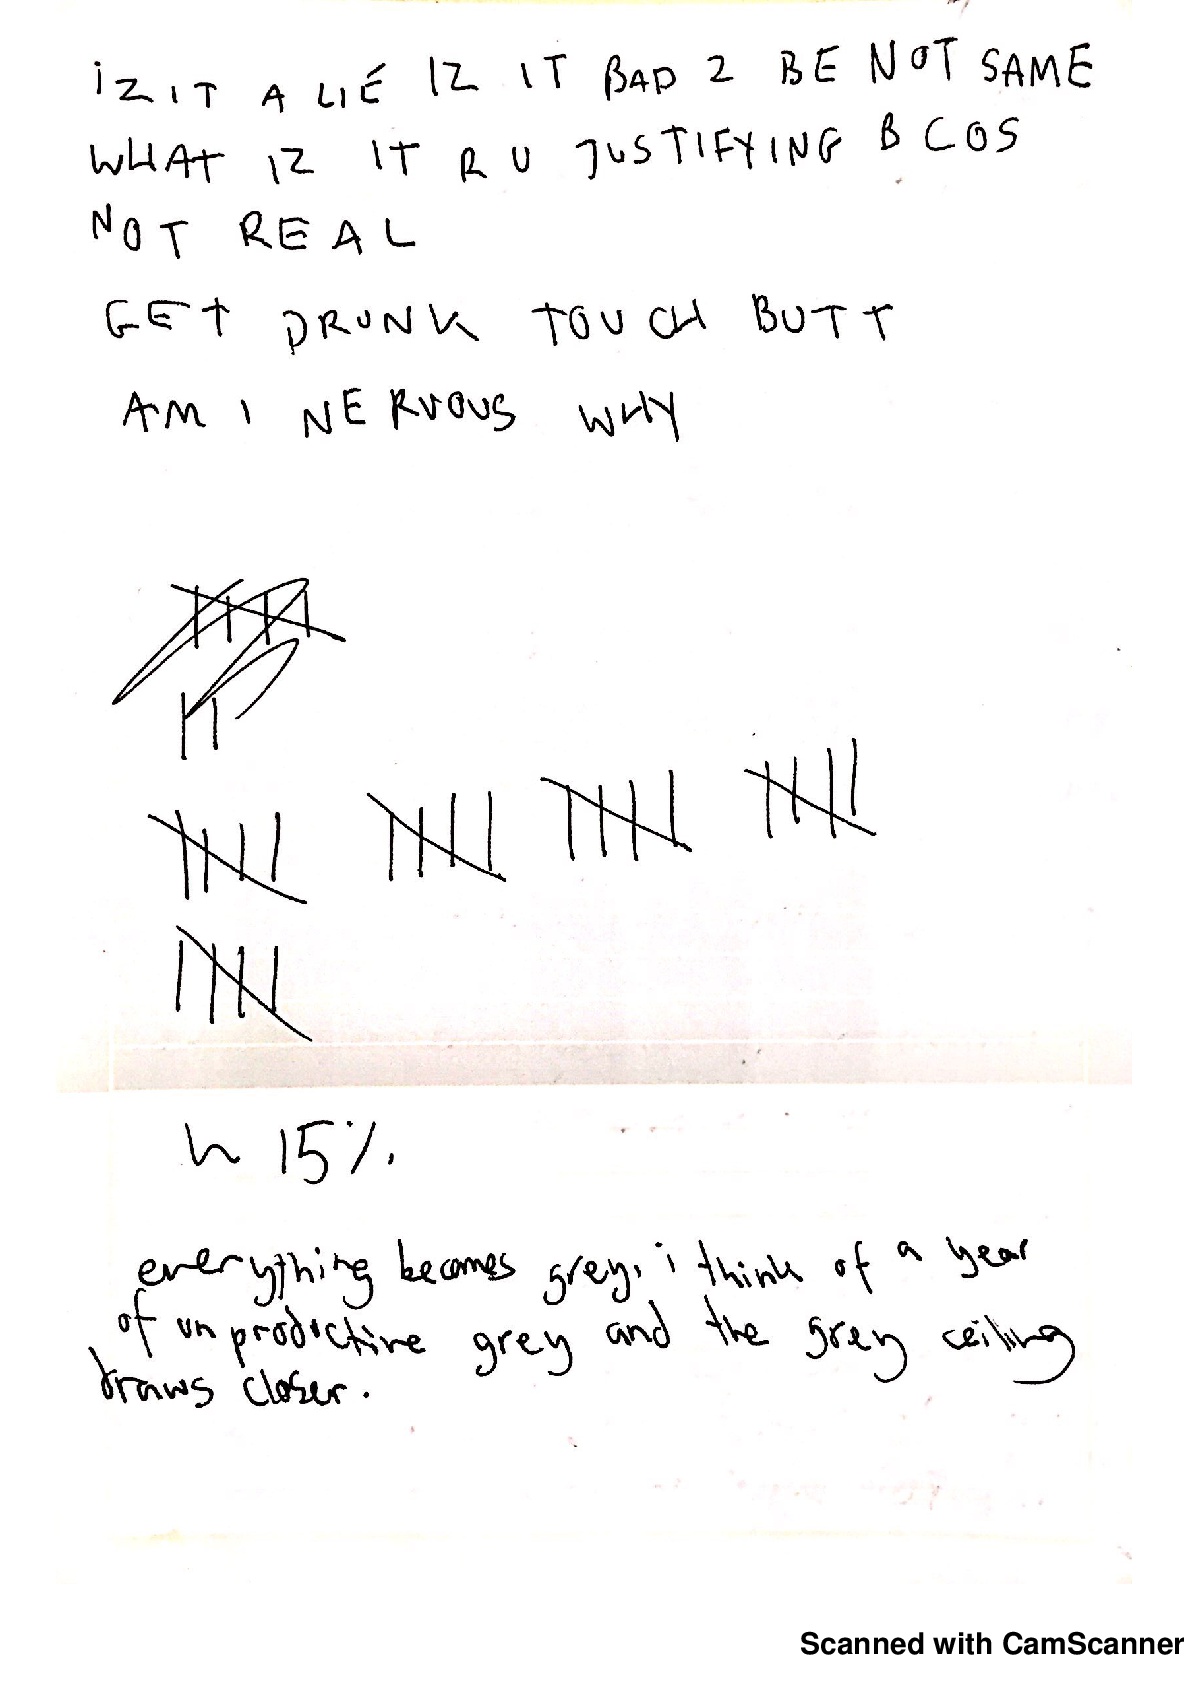 iZ IT A LIÉ IZ IT BAD 2 BE NOT SAME
WHAT IZ IT R U JUSTIFYING B COS
NOT REAL
GET DRUNK TOUCH BUTT
AM I NERVOUS WHY
h 15%.
everything becomes grey. i think of a year
of unproductive grey and the grey ceiling
draws closer.
Scanned with CamScanner